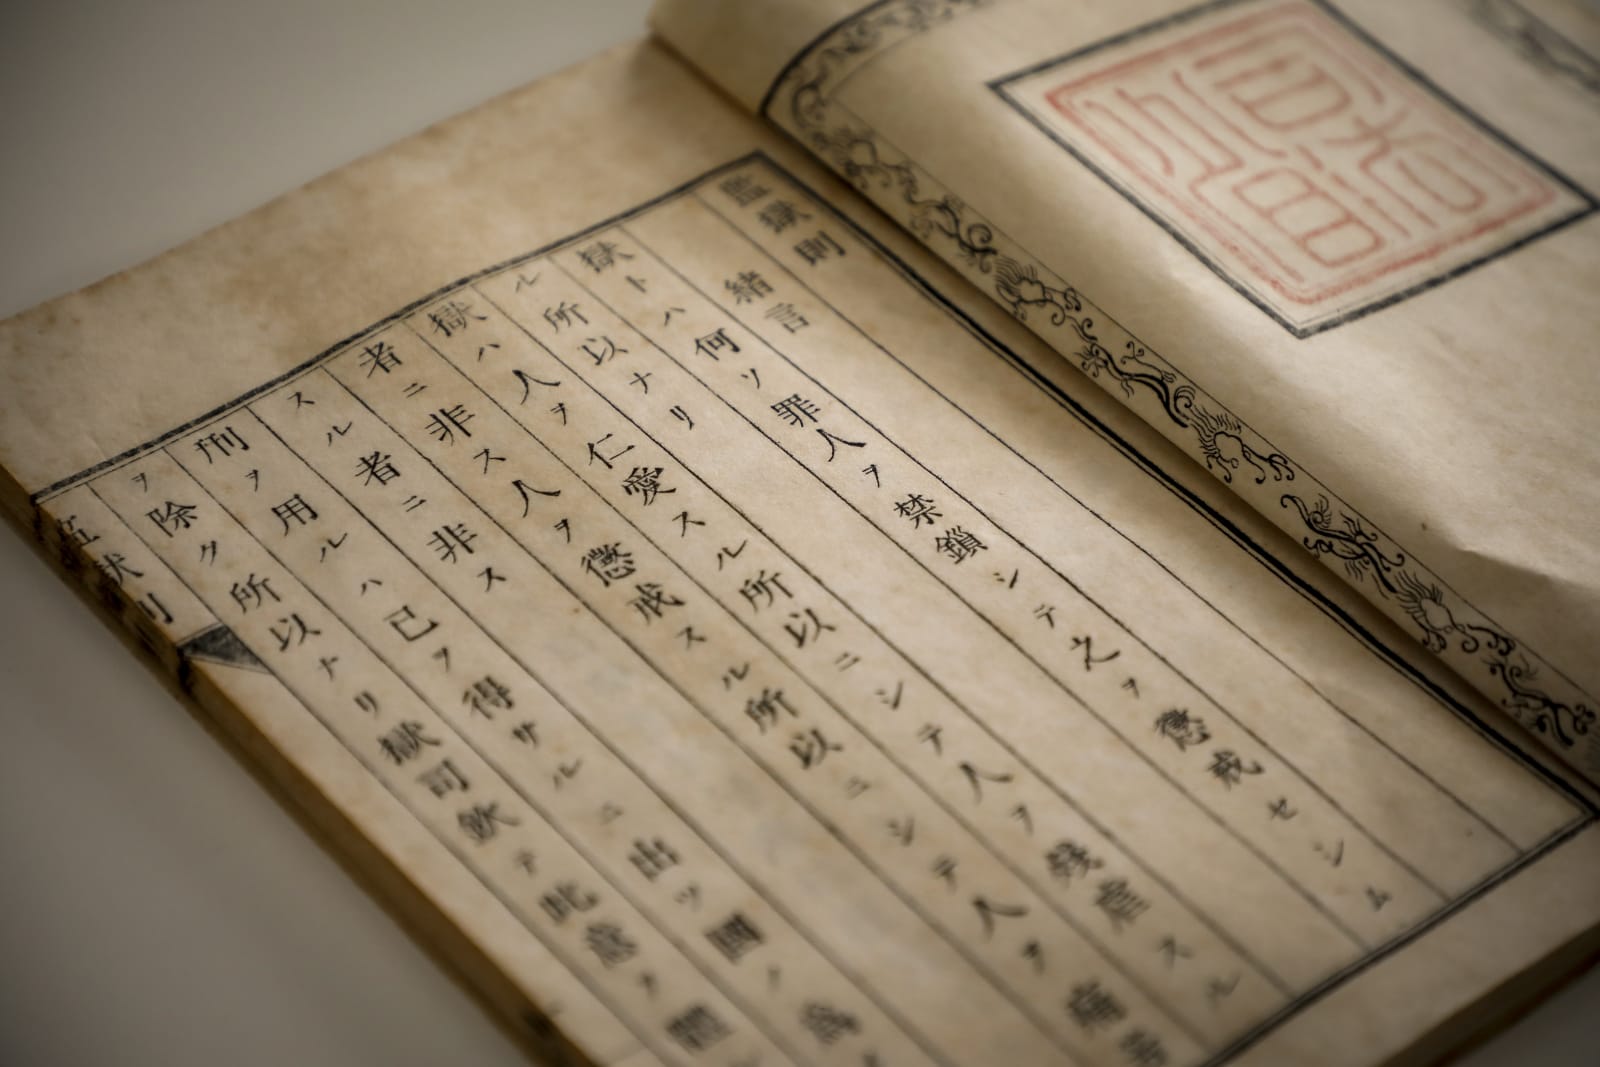 監獄則
緒言
獄トハ何ソ罪人ヲ禁鎖シテ之ヲ懲戒セシム
ル所以ナリ
獄ハ人ヲ仁愛スル所以ニシテ人ヲ殘虐スル
者ニ非ス人ヲ懲戒スル所以ニシテ人ヲ痛苦
スル者ニ非ス
刑ヲ用ルハ已ヲ得サルニ出ツ國ノ爲
ヲ除ク所以ナリ獄司欽テ此意ヲ體
監獄則